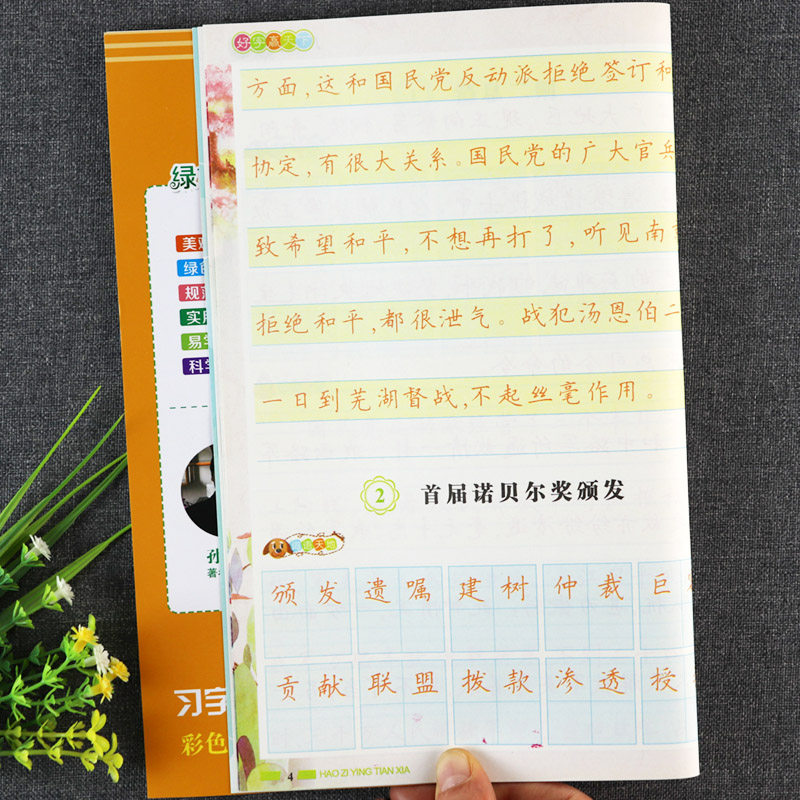 好字赢天下
方面,这和国民党反动派拒绝签订和
协定,有很大关系。国民党的广大官兵
致希望和平,不想再打了,听见南
拒绝和平,都很泄气。战犯汤恩伯二
一日到芜湖督战,不起丝毫作用。
2 首届诺贝尔奖颁发
天地
颁发 遗嘱 建树 仲裁 巨
贡献 联盟 拨款 渗透 授
4 HAO ZI YING TIAN XIA
绿
美
绿
规范
实用
易学
科学
孙
著
习字
彩色